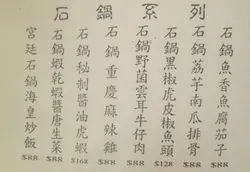 石鍋系列
石鍋魚香魚腐茄子 $88
石鍋荔芋南瓜排骨 $88
石鍋黑椒虎皮椒魚頭 $128
石鍋野菌雲耳牛仔肉 $88
石鍋重慶麻辣雞 $88
石鍋秘制醬油虎蝦 $168
石鍋蝦乾蝦醬唐生菜 $88
宮廷石鍋海皇炒飯 $88